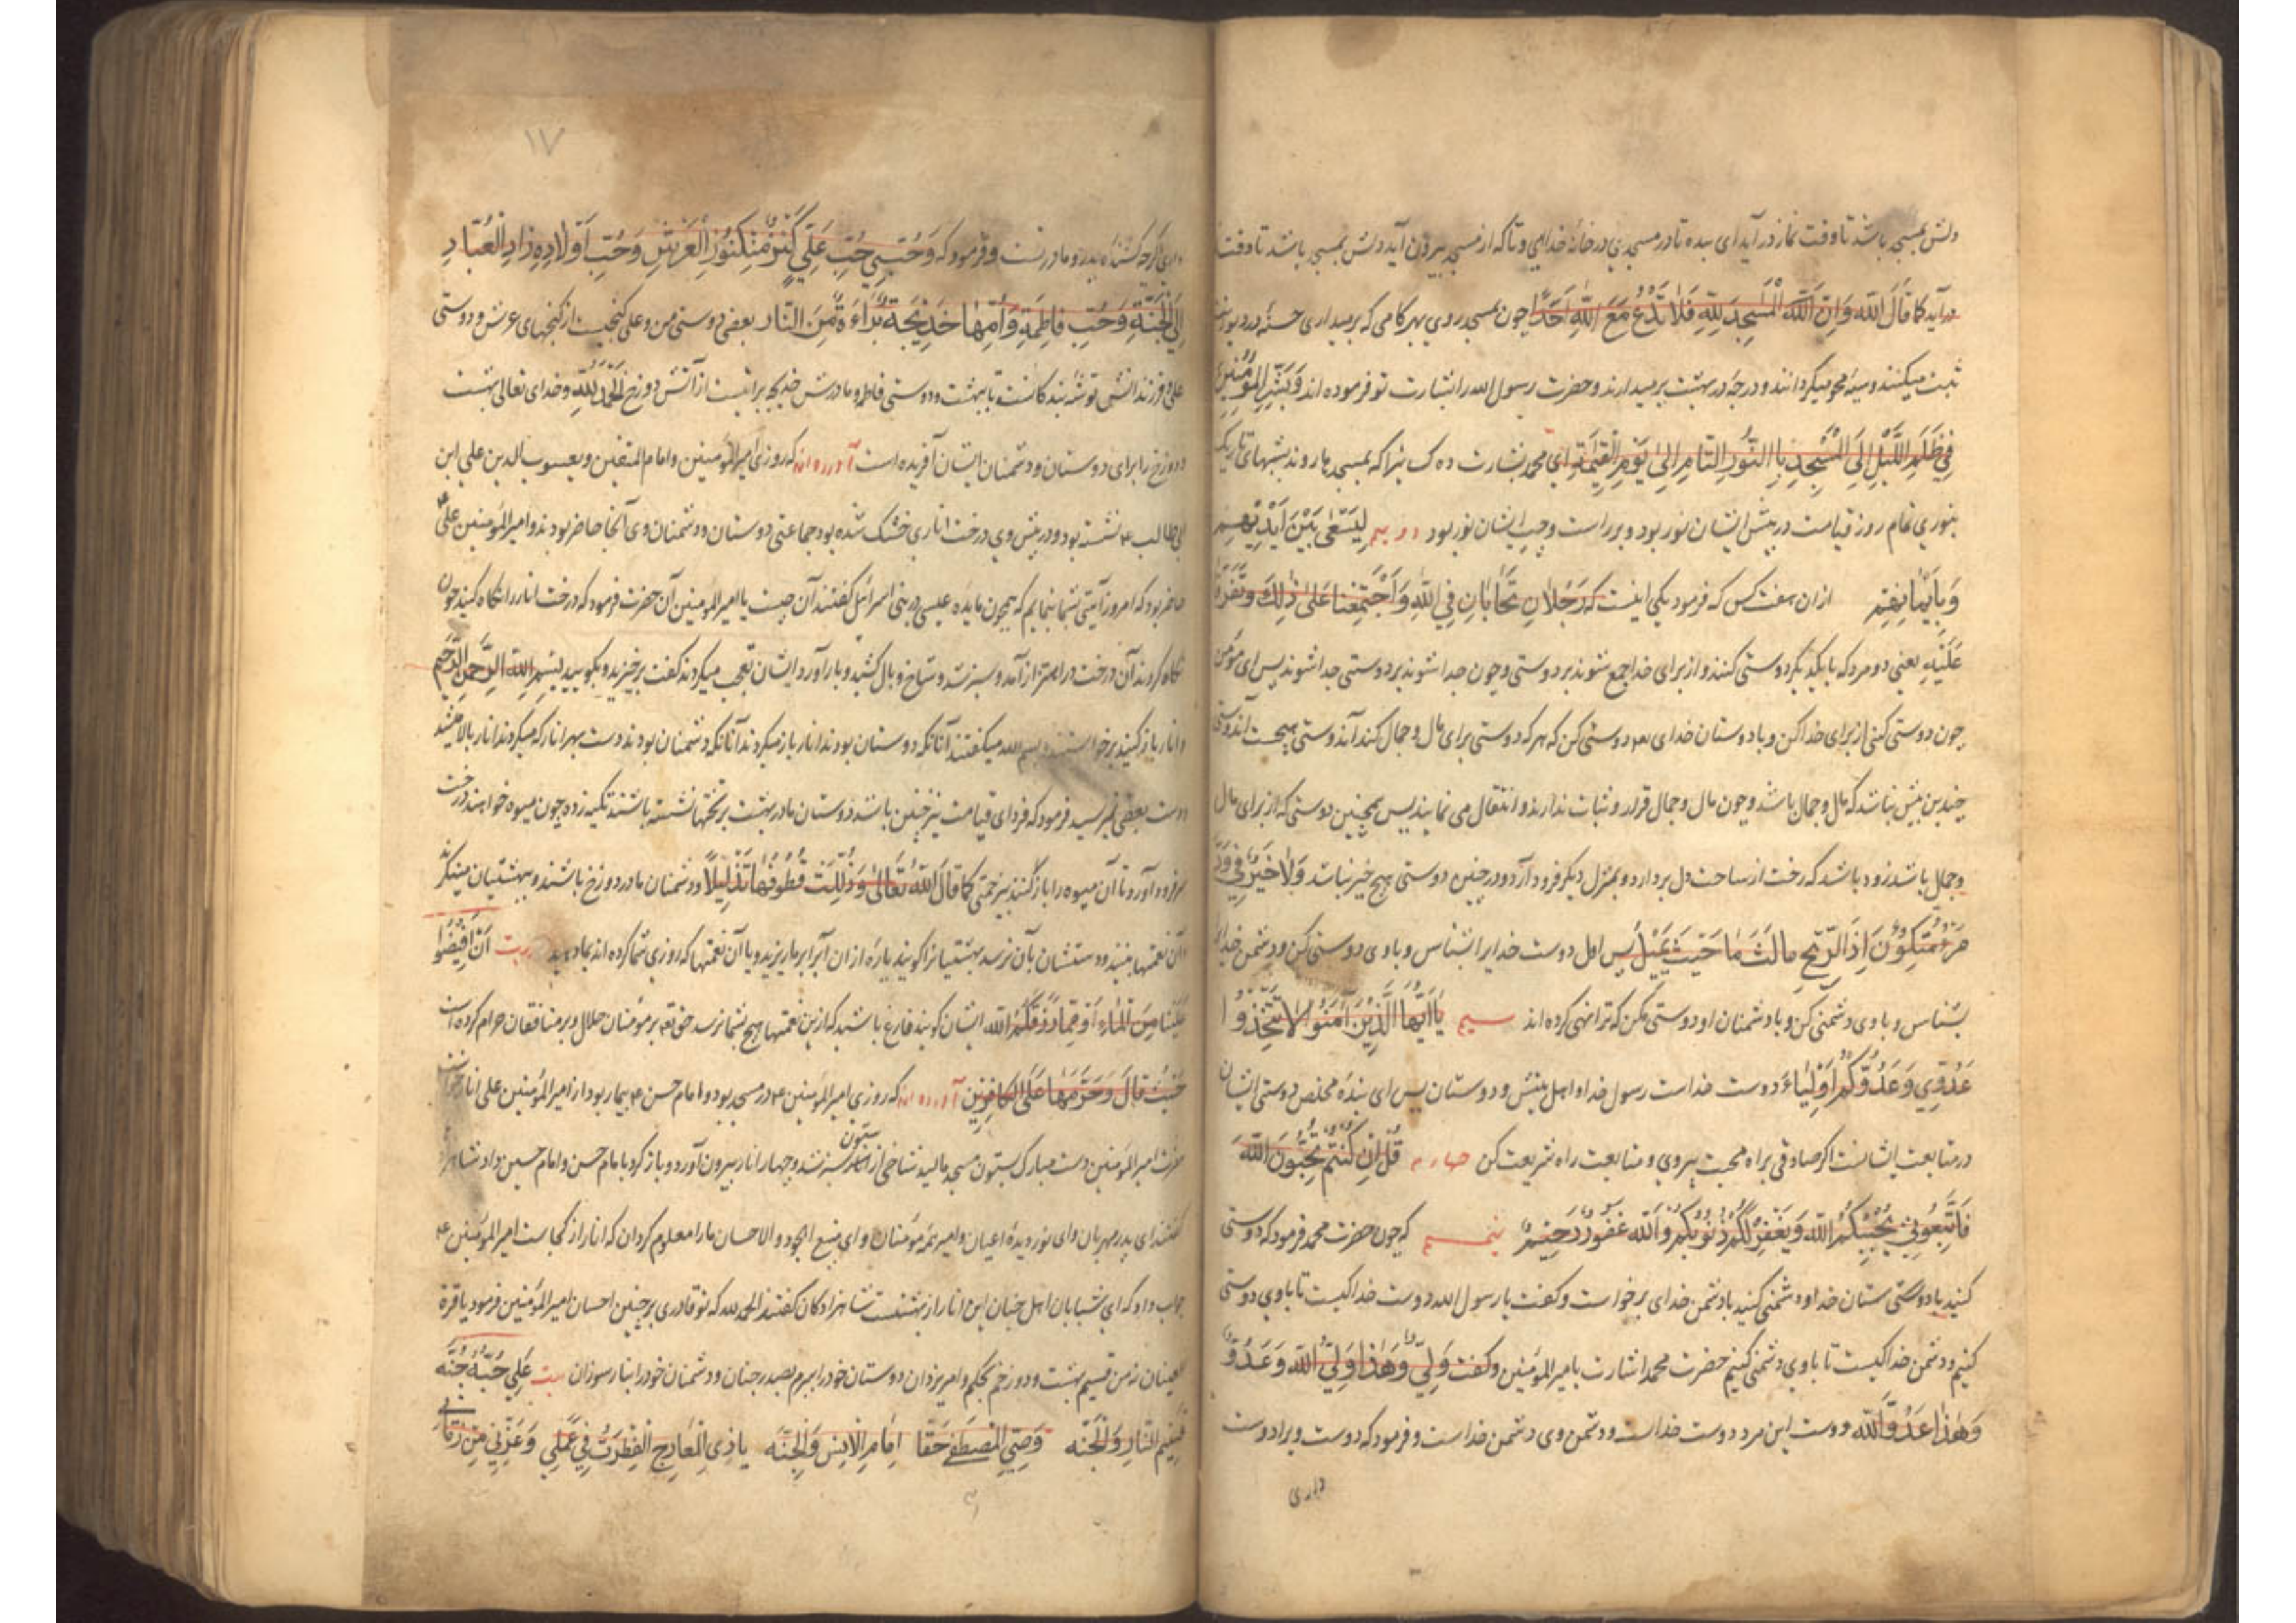 دلش بمسجد باشد تا وقت نماز درآید ای بنده تا در مسجدی در خانهٔ خدایی و تا که از مسجد بیرون آید دلش بمسجد باشد تا وقت
درآید کما قال الله وَاَنَّ الْمَسٰجِدَ لِلّٰهِ فَلَا تَدْعُ مَعَ اللّٰهِ اَحَدًا چون بمسجد روی بهر کامی که برمیداری حسنهٔ در دیوان
ثبت میکنند و سیئه محو میگردانند و درجهٔ در بهشت برمیدارند و حضرت رسول الله را بشارت تو فرموده اند وَبَشِّرِ الْمُؤْمِنِينَ
فِي ظُلَمِ اللَّيْلِ اِلَى الْمَسْجِدِ بِاالنُّورِ التَّامِ اِلىٰ يَوْمِ الْقِيٰمَةِ ای محمد بشارت ده کسانرا که بمسجد ها روند بشبهای تاریک
بنوری تمام روز قیامت در پیش ایشان نور بود و بر راست و چپ ایشان نور بود دویم لِيَسْعٰى بَيْنَ اَيْدِيهِمْ
وَبِاَيْمَانِهِمْ ازان هفت کس که فرمود یکی اینست که رَجُلَانِ تَحَابَّانِ فِي اللّٰهِ وَاَجْتَمَعْنَا عَلىٰ ذٰلِكَ وَتَفَرَّقَا
عَلَيْهِ یعنی دو مرد که با یکدیگر دوستی کنند و از برای خدا جمع شوند بر دوستی و چون جدا شوند بر دوستی جدا شوند پس ای مؤمن
چون دوستی کنی از برای خدا کن و با دوستان خدای تع دوستی کن که هر که دوستی برای مال و جمال کند آن دوستی
چندین پیش نباشد که مال و جمال باشد و چون مال و جمال قرار و ثبات ندارند و انتقال می نمایند پس همچنین دوستی که از برای مال
و جمال باشد زود باشد که رخت از ساحت دل بردارد و بمنزل دیگر فرود آرد و در چنین دوستی هیچ خیر نباشد وَلَا خَيْرَ فِي وُدِّ
اِذَا الرِّيحُ مالَتْ مَا حَيْثُ يَمِيلُ پس اول دوست خدایرا بشناس و با وی دوستی کن و دشمن خدا را
بشناس و با وی دشمنی کن و با دشمنان او دوستی مکن که ترا نهی کرده اند سیم يَا اَيُّهَا الَّذِينَ آمَنُوا لَا تَتَّخِذُوا
عَدُوِّي وَعَدُوَّكُمْ اَوْلِيَاءَ دوست خداست رسول خدا و اهل بیتش و دوستان پس ای بندهٔ مخلص دوستی ایشان
در متابعت ایشانست اگر صادقی براه محبت پیروی و متابعت راه شریعت کن چهارم قُلْ اِنْ كُنْتُمْ تُحِبُّونَ اللّٰهَ
فَاتَّبِعُونِي يُحْبِبْكُمُ اللّٰهُ وَيَغْفِرْ لَكُمْ ذُنُوبَكُمْ وَاللّٰهُ غَفُورٌ رَحِيمٌ پنجم که چون حضرت محمد فرمود که دوستی
کنید با دوستان خدا و دشمنی کنید با دشمن خدای برخواست و کفت یا رسول الله دوست خدا کیست تا با وی دوستی
کنیم و دشمن خدا کیست تا با وی دشمنی کنیم حضرت محمد اشارت بامیر المؤمنین و کفت وَلِيِّ وَهٰذَا وَلِيُّ اللّٰهِ وَعَدُوّ
وَهٰذَا عَدُوُّ اللّٰه دوست این مرد دوست خداست و دشمن وی دشمن خداست و فرمود که دوست ویرا دوست
داری
١٧
داری اگرچه کشندهٔ پدر و مادر تست و فرمود که وَحُبِّي حُبِّ عَلِيٍّ كَنْزٌ مِنْ كُنُوزِ الْعَرْشِ وَحُبِّ اَوْلَادِهِ زَادِ الْعُبَّادِ
اِلَى الْجَنَّةِ وَحُبِّ فَاطِمَةِ وَاُمِّهَا خَدِيجَةَ بَرَاءَةٌ مِنَ النَّارِ یعنی دوستی من و علی کنجیست از کنجهای عرش و دوستی
علی و فرزندانش توشهٔ بندکانست تا ببهشت و دوستی فاطمه و مادرش خدیجه براتیست از آتش دوزخ اَلْحَمْدُ لِلّٰهِ و خدای تعالی بهشت
و دوزخ را برای دوستان و دشمنان ایشان آفریده است آورده اند که روزی امیر المؤمنین و امام المتقین و یعسوب الدین علی ابن
ابی طالب ع نشسته بود و در پیش وی درخت اناری خشک شده بود جماعتی دوستان و دشمنان وی آنجا حاضر بودند و امیر المؤمنین علی ع
حاضر بود که امروز آیتی بشما بنمایم که همچون مایدهٔ عیسی در بنی اسرائیل کفتند آن چیست یا امیر المومنین آن حضرت فرمود که درخت انار را نکاه کنید چون
نکاه کردند آن درخت در اهتزاز آمد و سبز شد و شاخ و بال کشید و بار آورد ایشان تعجب میکردند کفت برخیزید و بکویید بِسْمِ اللّٰهِ الرَّحْمٰنِ الرَّحِيمِ
و انار باز کنید برخواستند و بسم الله میکفتند آنانکه دوستان بودند انار باز میکردند آنانکه دشمنان بودند دست بهر انار که میکردند انار بالا میشد
دست بعضی نمیرسید فرمود که فردای قیامت نیز چنین باشد دوستان ما در بهشت بر تختها نشسته باشند تکیه زده چون میوه خواهند درخت
سر فرود آورد تا آن میوه را باز کنند بی زحمتی کما قَالَ اللّٰهُ تَعَالىٰ وَذُلِّلَتْ قُطُوفُهَا تَذْلِيلًا و دشمنان ما در دوزخ باشند و ببهشتیان مینکرند
و آن نعمتها بینند و دستشان بآن نرسد بهشتیانرا کویند پارهٔ از ان آب بر ما ریزید و یا آن نعمتها که روزی شما کرده اند بما دهید اَنْ اَفِيضُوا
عَلَيْنَا مِنَ الْمَاءِ اَوْ مِمَّا رَزَقَكُمُ اللّٰه ایشان کویند فارغ باشید که ازین نعمتها هیچ بشما نرسد حق تع بر مؤمنان حلال و بر منافقان حرام کرده است
حَيْثُ قَالَ وَحَرَّمَهَا عَلَى الْكَافِرِينَ آورده اند که روزی امیر المؤمنین ع در مسجد بود و امام حسن ع بیمار بود از امیر المؤمنین علی انار خواست
حضرت امیر المؤمنین دست مبارک بستون مسجد مالید شاخی از ستون سبز شد و چهار انار بیرون آورد و باز کرد بامام حسن و امام حسین داد
کفتند ای پدر مهربان و ای نور دیدهٔ اعیان و امیر همهٔ مؤمنان و ای منبع الجود و الاحسان ما را معلوم کردان که انار از کجاست امیر المؤمنین ع
جواب داد که ای شبابان اهل جنان این انار از بهشتست شاهزادکان کفتند الحمد لله که تو قادری بر چنین احسان امیر المؤمنین فرمود یا قرة
العینان من قسیم بهشت و دوزخم بحکم و امر یزدان دوستان خود را ببرم بصدر جنان و دشمنان خود را بنار سوزان بیت عَلِي حُبُّهُ جُنَّه
قَسِيمُ النَّارِ وَالْجَنَّه وَصِيّ الْمُصْطَفٰى حَقًا اِمَامِ الْاِنْسِ وَالْجِنَّه یا ذِي الْمَعَارِجِ